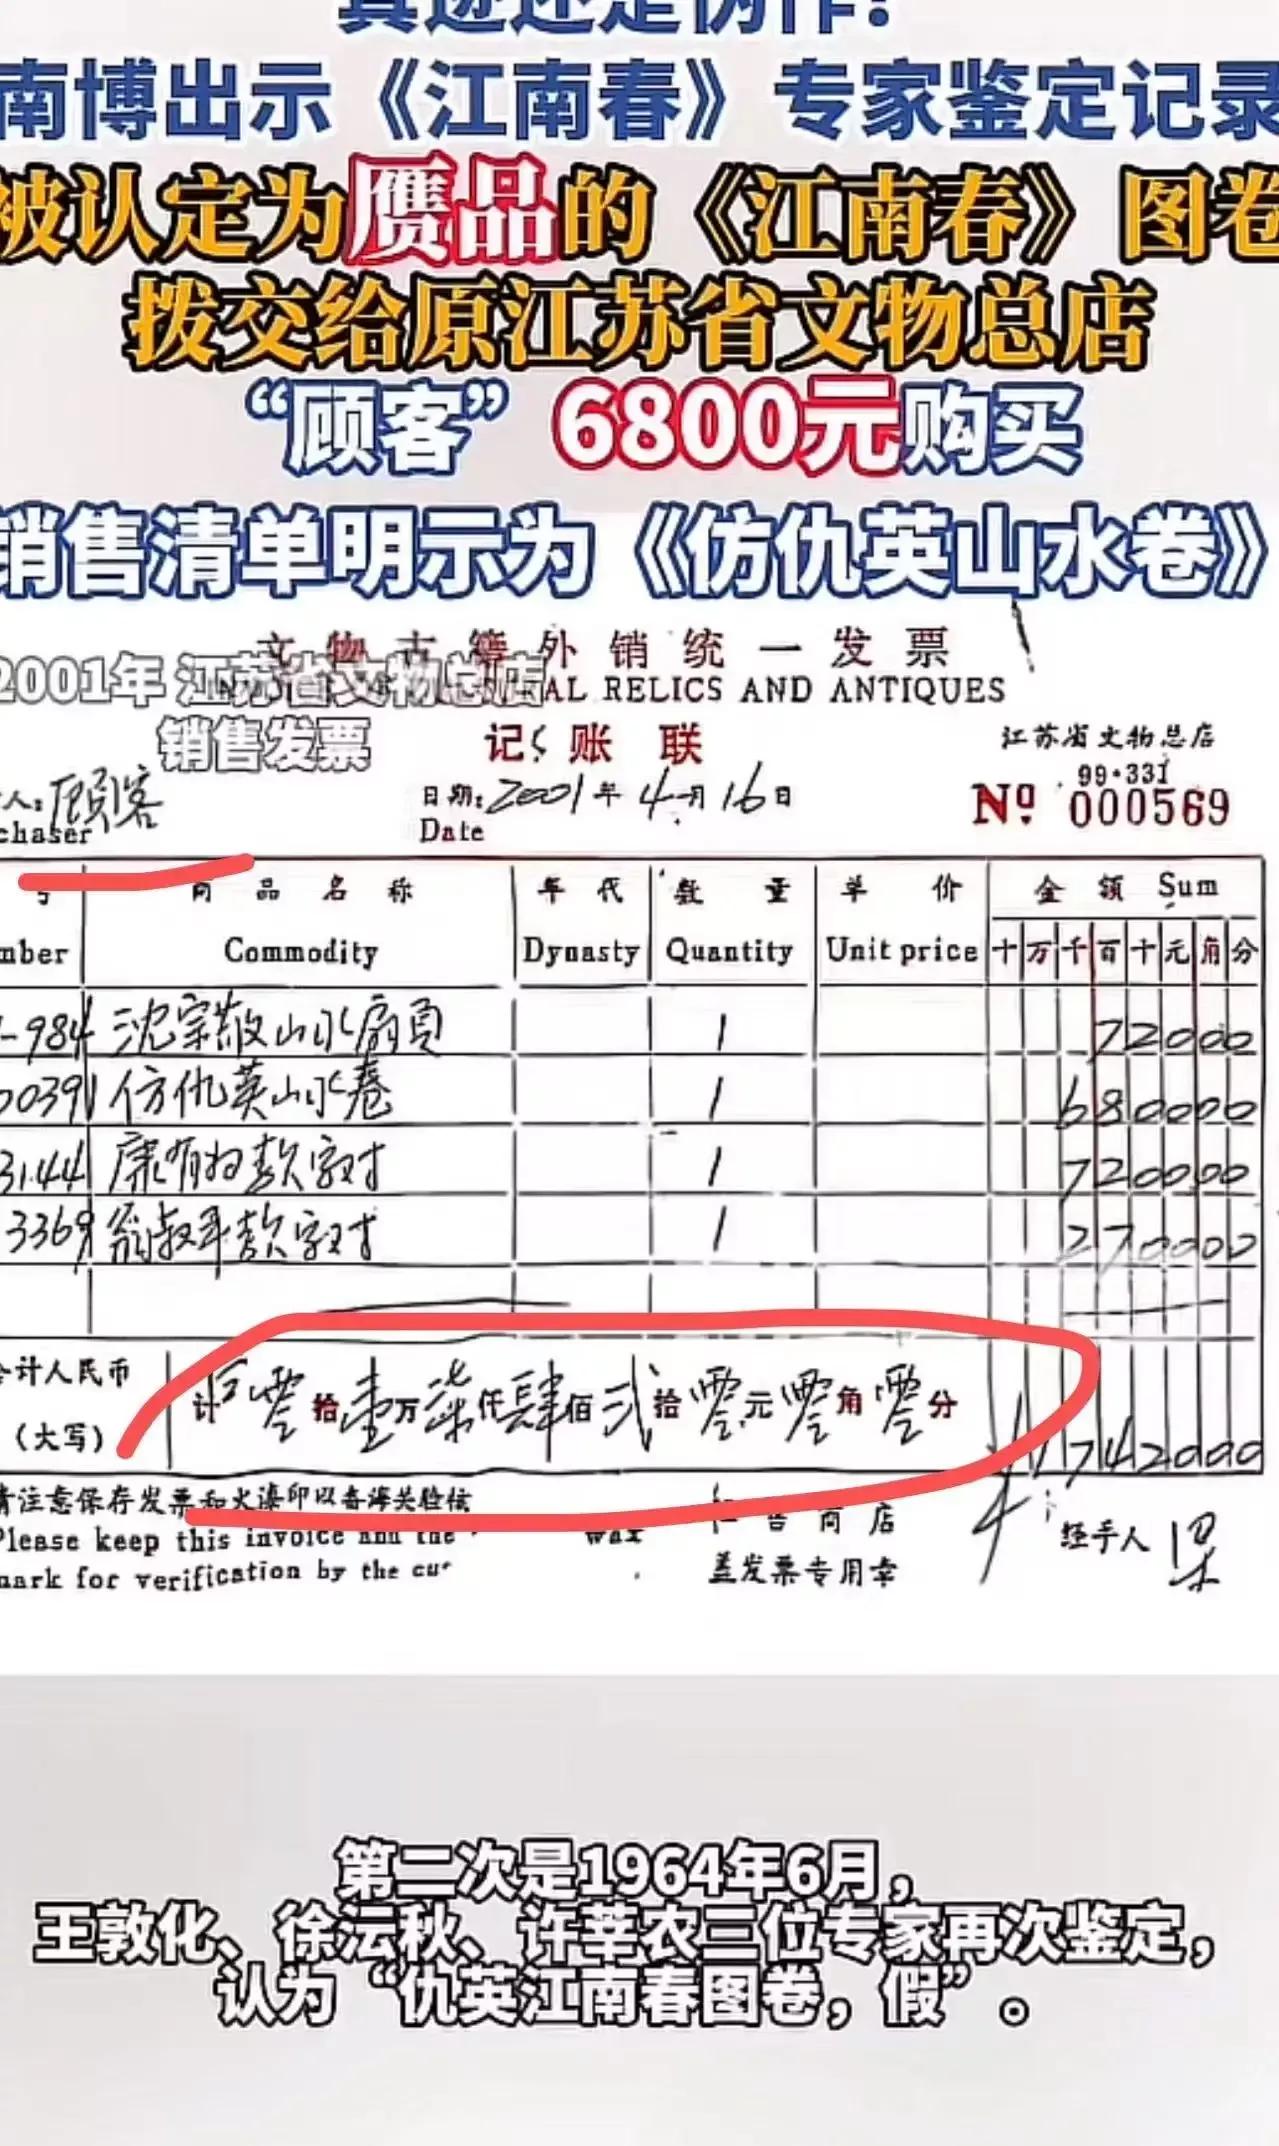 真迹还是伪作?
南博出示《江南春》专家鉴定记录
被认定为赝品的《江南春》图卷
拨交给原江苏省文物总店
“顾客”6800元购买
销售清单明示为《仿仇英山水卷》
文物古籍外销统一发票
RAL RELICS AND ANTIQUES
2001年 江苏省文物总店
销售发票
记账联
江苏省文物总店
99·331
人:顾客
chaser
日期:2001年4月16日
Date
Nº 000569
号 商品名称 年代 数量 单价 金额 Sum
mber Commodity Dynasty Quantity Unit price 十万千百十元角分
-984 沈宗敬山水扇页 1 72000
00391 仿仇英山水卷 1 680000
3144 康有为款字对 1 720000
3369 翁叔平款字对 1 270000
合计人民币
(大写)
计 零拾壹万柒仟肆佰贰拾零元零角零分
1742000
请注意保存发票和火漆印以备海关验估
Please keep this invoice and the wax
mark for verification by the cu
售商店
盖发票专用章
经手人
第二次是1964年6月,
王敦化、徐沄秋、许莘农三位专家再次鉴定,
认为“仇英江南春图卷,假”。